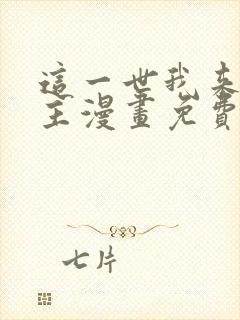 這一世我來
主漫畫免費
七片